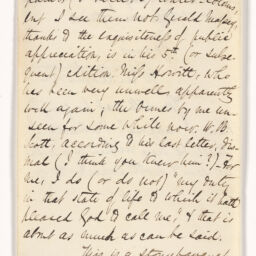 ent I see them not. Gerald Massey,
thanks to the exquisiteness of public
appreciation, is in his 5th (or subse-
quent) edition. Miss Howitt, who
has been very unwell apparently
well again; the former by me un-
seen for some while now. W. B.
Scott, according to his last letter, dis-
mal (I think you knew him?)—For
me, I do (or do not) "my duty
in that state of life to which it hath
pleased God to call me," & that is
about as much as can be said.
This is a